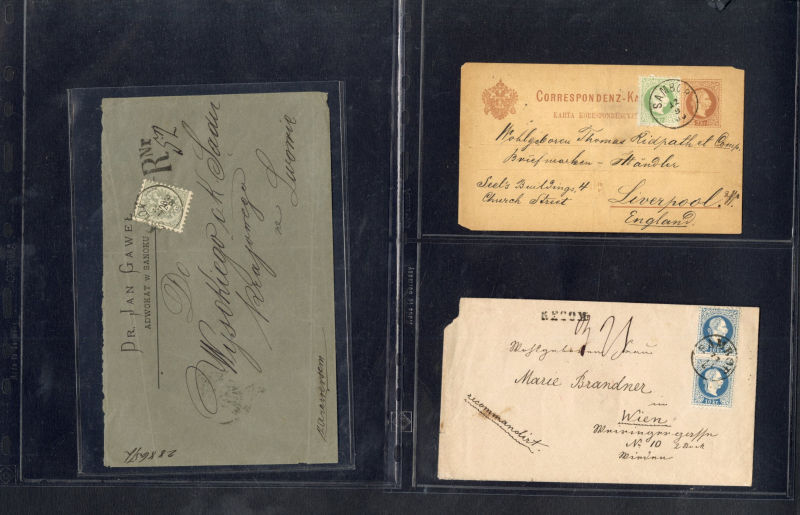 DR. JAN GAWEŁ
ADWOKAT W SANOKU
R Nr
52
Do
Wysokiego c.k. Sądu
Krajowego
we Lwowie
CORRESPONDENZ-KA
KARTA KORESPONDENCYJNA
SAMBOR
Wohlgeboren Thomas Ridpath et Comp.
Briefmarken-Händler
Seel's Buildings, 4
Church Street
Liverpool.
England.
RECOM
Wohlgeboren Frau
Marie Brandner
in
Wien
recommandirt.
No 10 2 Stock
Wieden
SAMBOR
10 kr